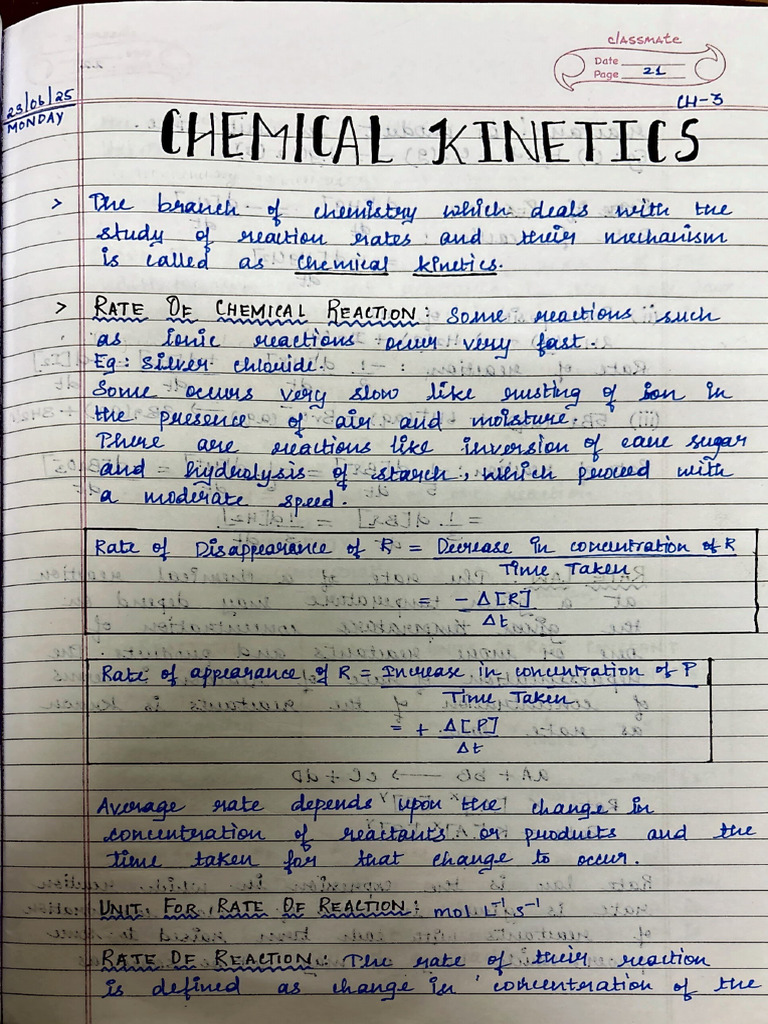 classmate
Date
Page 21
23/06/25
MONDAY
CH-3
CHEMICAL KINETICS
> The branch of chemistry which deals with the
study of reaction rates and their mechanism
is called as chemical kinetics.
> RATE OF CHEMICAL REACTION: Some reactions such
as ionic reactions occur very fast.
Eg: Silver chloride.
Some occurs very slow like rusting of ion in
the presence of air and moisture.
There are reactions like inversion of cane sugar
and hydrolysis of starch, which proceed with
a moderate speed.
Rate of Disappearance of R = Decrease in concentration of R
Time Taken
= - Δ[R]
Δt
Rate of appearance of R = Increase in concentration of P
Time Taken
= + Δ[P]
Δt
Average rate depends upon the change in
concentration of reactants or products and the
time taken for that change to occur.
UNIT FOR RATE OF REACTION: mol L⁻¹ s⁻¹
RATE OF REACTION: The rate of their reaction
is defined as change in concentration of the